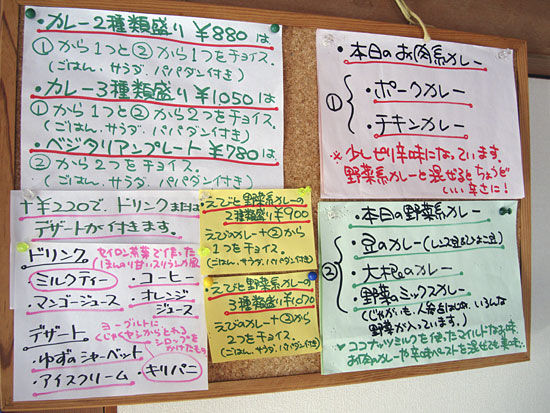 ・カレー2種類盛り ¥880は
①から1つと②から1つをチョイス。
(ごはん、サラダ、パパダン付き)
・カレー3種類盛り ¥1050は
①から1つと②から2つをチョイス。
(ごはん、サラダ、パパダン付き)
・ベジタリアンプレート ¥780は
②から2つをチョイス。
(ごはん、サラダ、パパダン付き)
・本日のお肉系カレー
① ・ポークカレー
・チキンカレー
※少しピリ辛味になっています。
野菜系カレーと混ぜるとちょうど
いい辛さに!
+¥220で、ドリンクまたは
デザートが付きます。
ドリンク
セイロン紅茶で作った
ほんのり甘い
・ミルクティー ・コーヒー
・マンゴージュース ・オレンジ
ジュース
デザート
ヨーグルトに
くじゃくヤシからとれる
シロップを
かけたもの
・ゆずのシャーベット
・アイスクリーム ・キリパニ
・えびと野菜系カレーの
2種類盛り ¥900
えびカレー+②から
1つをチョイス。
(ごはん、サラダ、パパダン付き)
・えびと野菜系カレーの
3種類盛り ¥1070
えびカレー+②から
2つをチョイス。
(ごはん、サラダ、パパダン付き)
・本日の野菜系カレー
② ・豆のカレー(レンズ豆&ひよこ豆)
・大根のカレー
・野菜のミックスカレー
(じゃがいも、人参をはじめ、いろんな
野菜が入っています。)
ココナッツミルクを使ったマイルドなお味
お肉のカレーや辛味ペーストを混ぜても美味